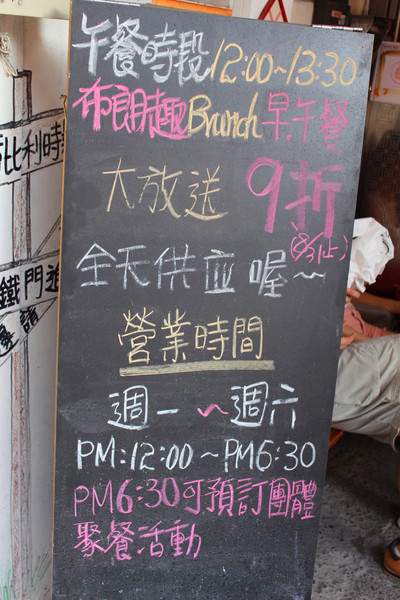 午餐時段12:00~13:30
布朗趣Brunch早.午餐
大放送9折
(8/31止)
全天供应喔~
營業時間
週一~週六
PM:12:00~PM6:30
PM6:30可預訂團體
聚餐活動
比利時
鐵門